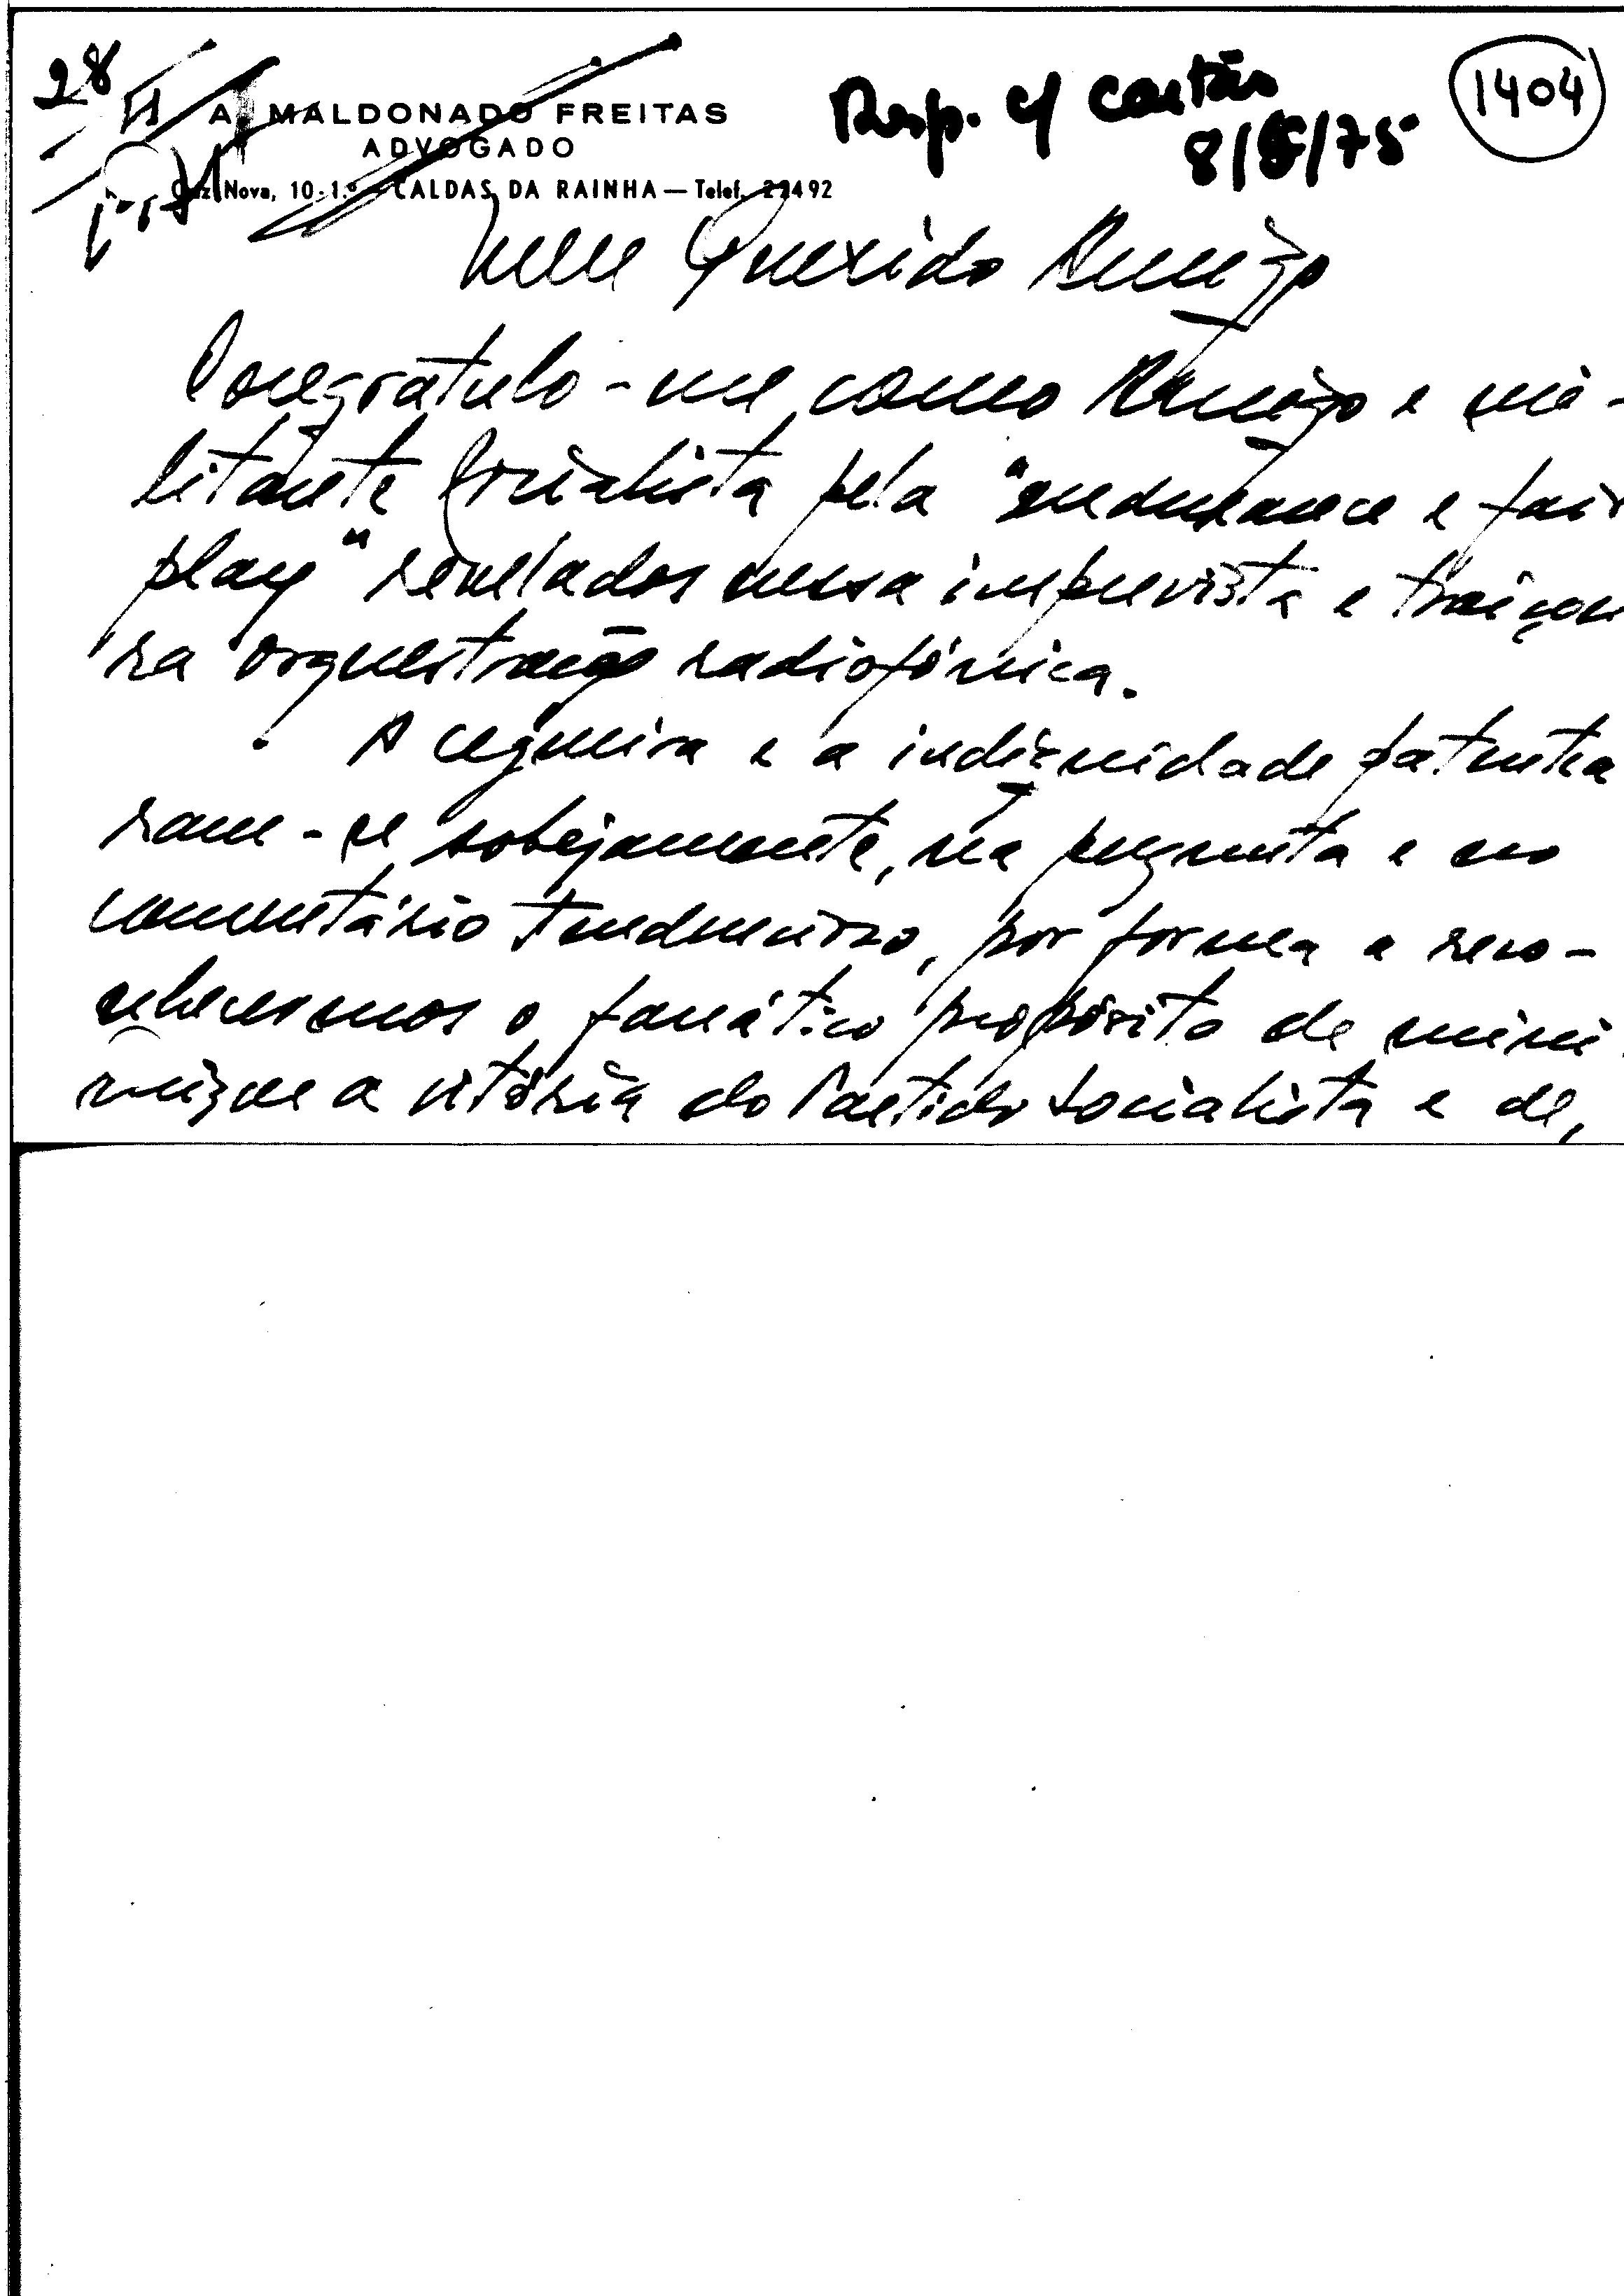 28
A. MALDONADO FREITAS
ADVOGADO
Nova, 10-1.º - CALDAS DA RAINHA — Telef. 22492
Resp. c/ cartão
8/5/75
1404
Meu Querido Amigo
Congratulo-me como Amigo e mi-
litante Socialista pela "endurance e fair
play" revelados nessa imprevista e traiçoei
ra orquestração radiofónica.
A cegueira e a indignidade patentea
ram-se sobejamente, na pergunta e no
comentário tendencioso, por forma a reco-
nhecermos o fanático propósito de mini
mizar a vitória do Partido Socialista e de,